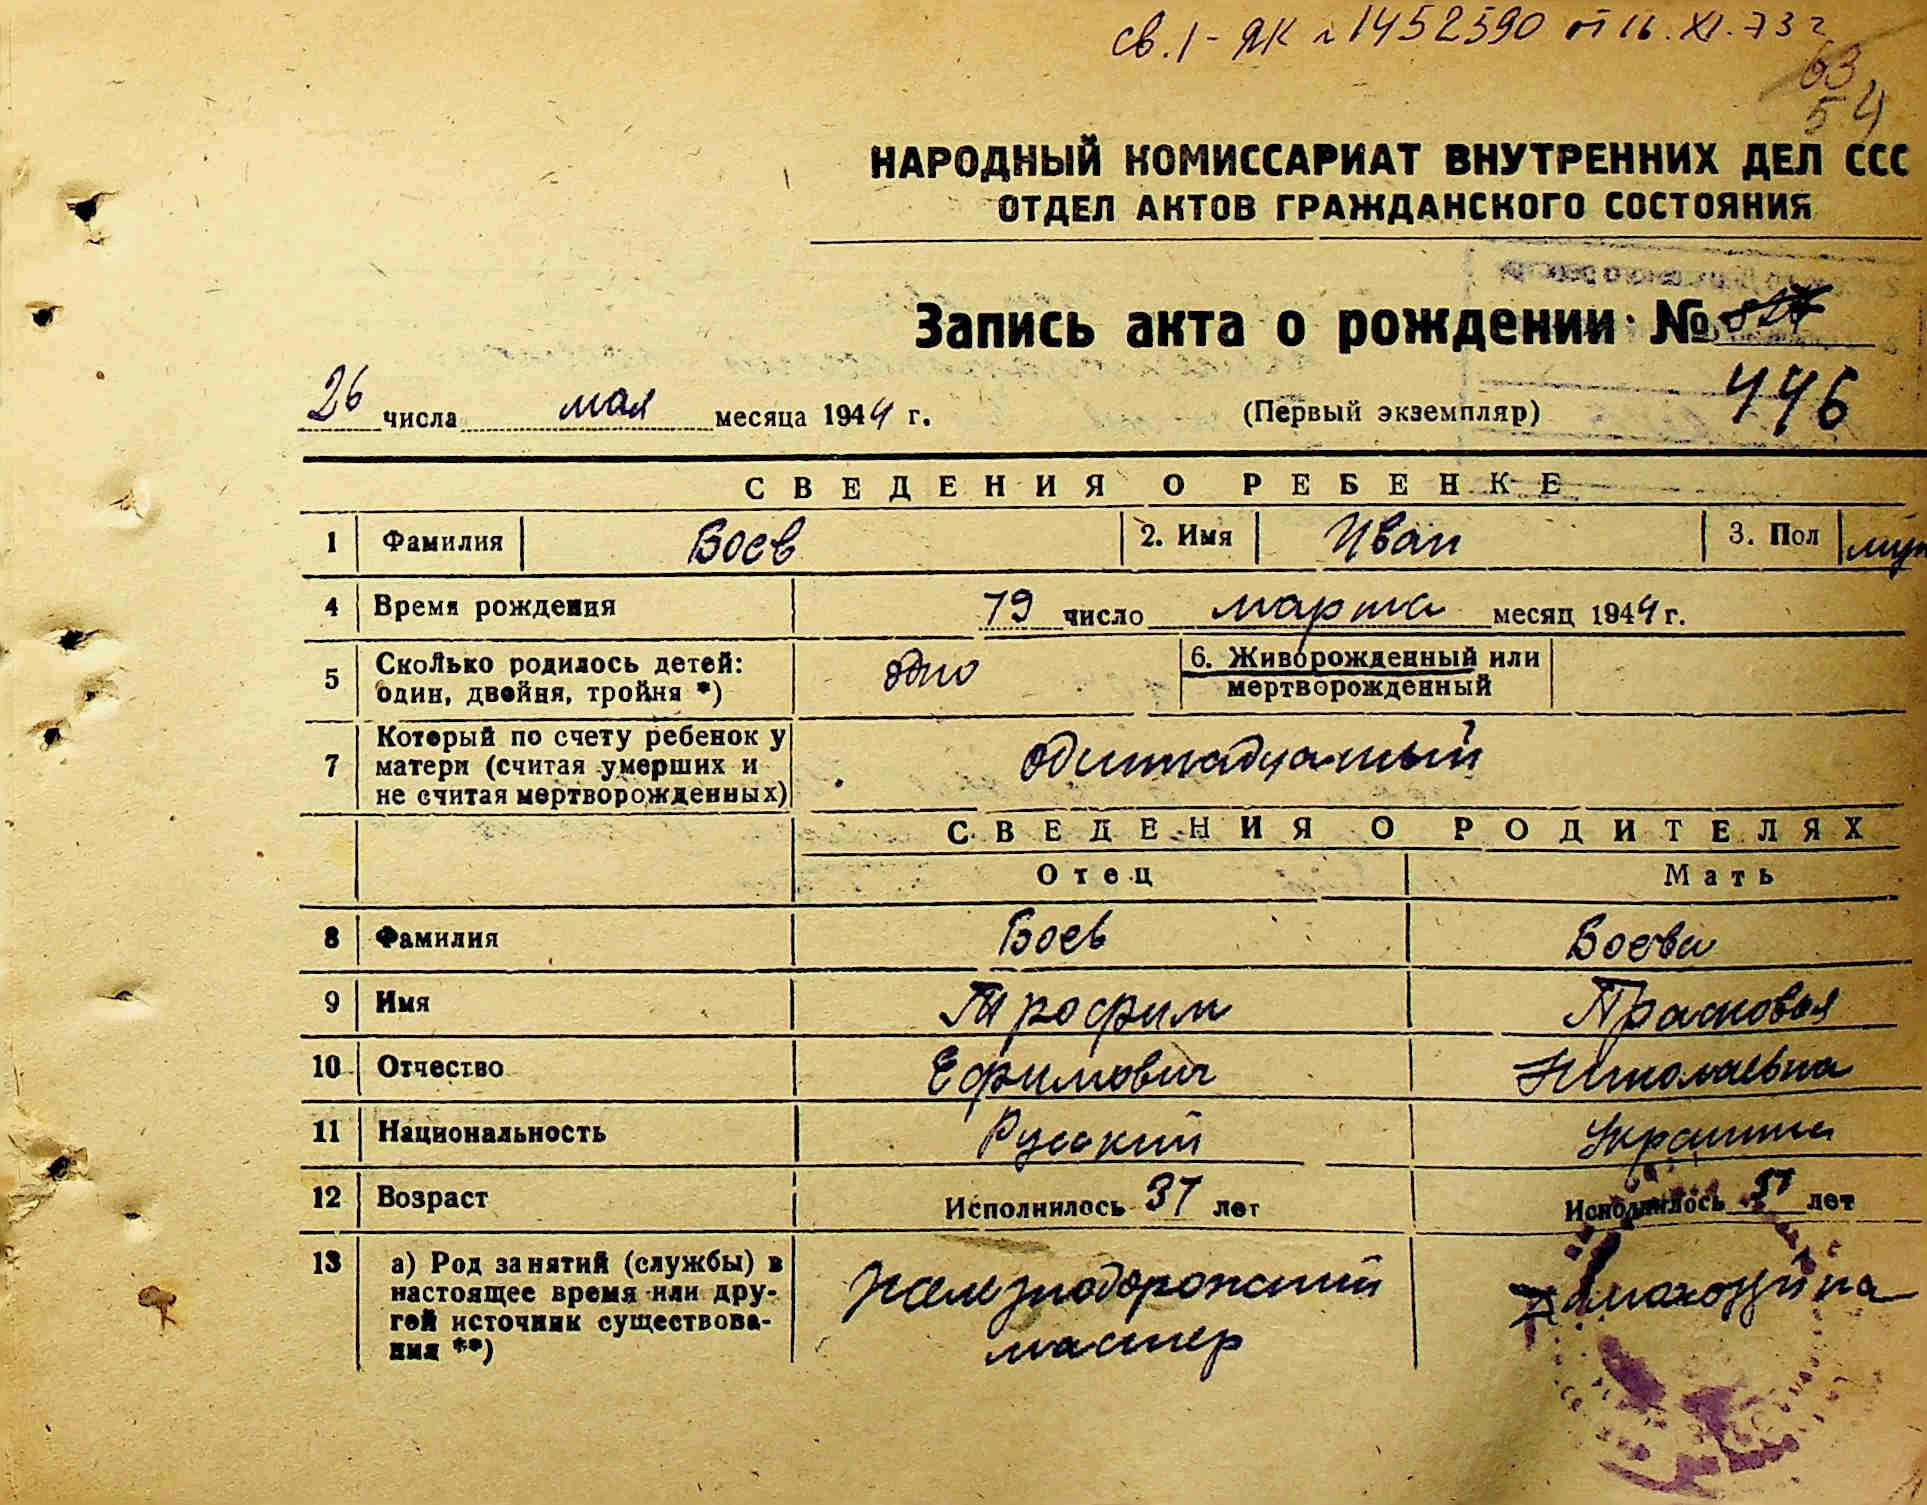 св. I-ЯК № 1452590 от 16.XI.73 г
63
54
НАРОДНЫЙ КОМИССАРИАТ ВНУТРЕННИХ ДЕЛ ССС
ОТДЕЛ АКТОВ ГРАЖДАНСКОГО СОСТОЯНИЯ
Запись акта о рождении №
446
26 числа мая месяца 1944 г. (Первый экземпляр)
СВЕДЕНИЯ О РЕБЕНКЕ
1 Фамилия Боев 2. Имя Иван 3. Пол муж
4 Время рождения 19 число марта месяц 1944 г.
5 Сколько родилось детей: один, двойня, тройня *) одно 6. Живорожденный или мертворожденный
7 Который по счету ребенок у матери (считая умерших и не считая мертворожденных) одиннадцатый
СВЕДЕНИЯ О РОДИТЕЛЯХ
Отец Мать
8 Фамилия Боев Боева
9 Имя Трофим Прасковья
10 Отчество Ефимович Николаевна
11 Национальность Русский Украинка
12 Возраст Исполнилось 37 лет Исполнилось 37 лет
13 а) Род занятий (службы) в настоящее время или другой источник существования **) Железнодорожный мастер Домохозяйка